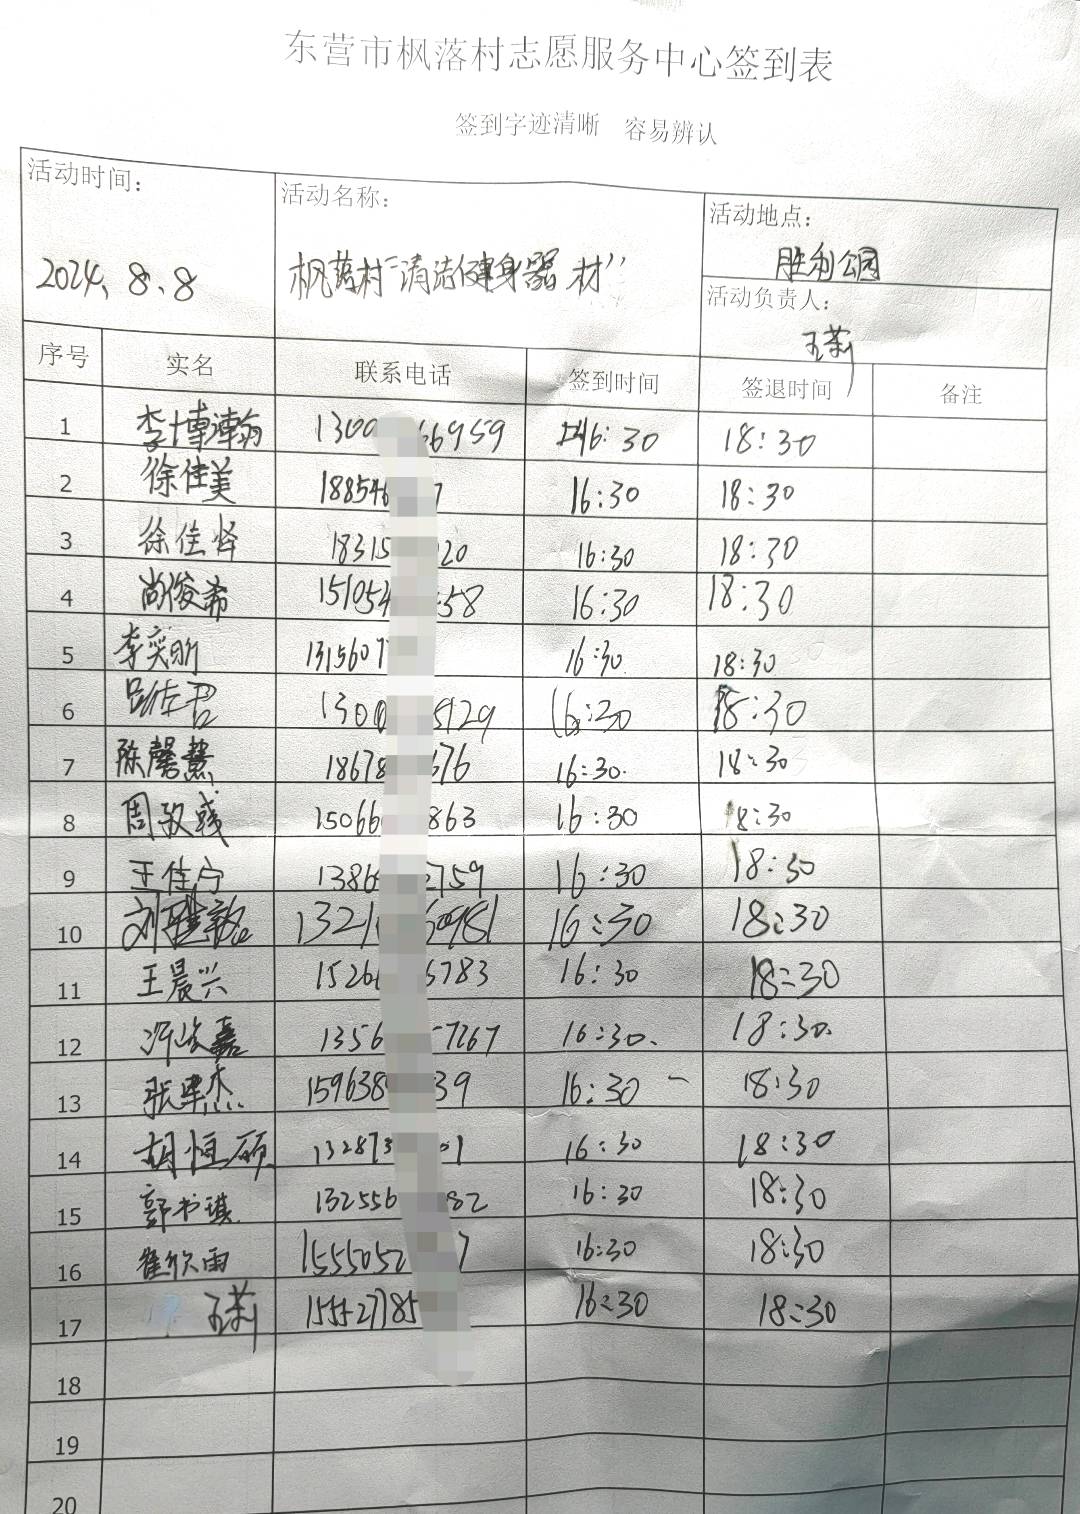 东营市枫落村志愿服务中心签到表
签到字迹清晰 容易辨认
活动时间： 活动名称： 活动地点：
2024、8、8 枫落村“清洁健身器材” 胜利公园
活动负责人：
王莉
序号 实名 联系电话 签到时间 签退时间 备注
1 李博瀚 1300 66959 16:30 18:30
2 徐佳美 188546 7 16:30 18:30
3 徐佳怿 18315 20 16:30 18:30
4 尚俊希 151054 58 16:30 18:30
5 李奕昕 1315607 16:30 18:30
6 1300 5129 16:30 18:30
7 陈馨慧 18678 676 16:30 18:30
8 周 15066 863 16:30 18:30
9 王佳宁 1386 2759 16:30 18:30
10 刘 1321 60981 16:30 18:30
11 王晨兴 1526 6783 16:30 18:30
12 嘉 1356 7267 16:30 18:30
13 张 杰 159638 39 16:30 18:30
14 胡恒硕 132873 1 16:30 18:30
15 郭书琪 132556 82 16:30 18:30
16 崔欣雨 1555052 7 16:30 18:30
17 王莉 155527785 16:30 18:30
18
19
20